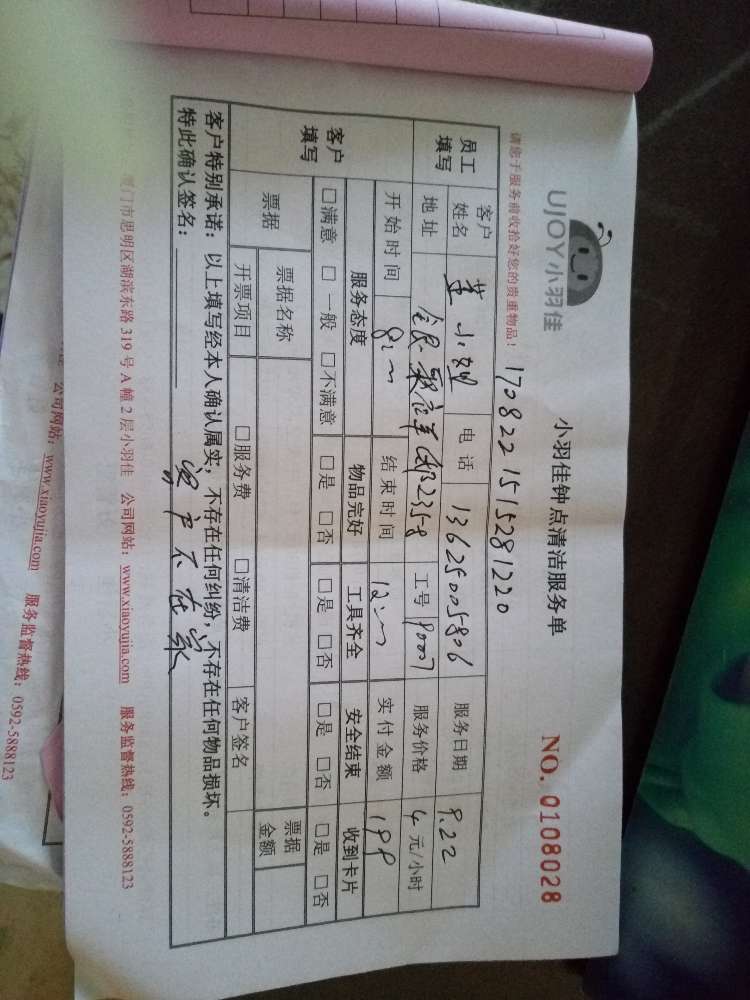 UJOY小羽佳
小羽佳钟点清洁服务单
NO. 0108028
请您于服务前收拾好您的贵重物品！
1708221515281220
员工填写 客户姓名 小姐 电话 13625005806 服务日期 8.22
地址 工号 P0007 服务价格 4 元/小时
开始时间 8: 结束时间 12: 实付金额 199
客户填写 服务态度 物品完好 工具齐全 安全结束 收到卡片
□满意 □一般 □不满意 □是 □否 □是 □否 □是 □否 □是 □否
票据 票据名称 票据金额
开票项目 □服务费 □清洁费 客户签名
客户特别承诺：以上填写经本人确认属实，不存在任何纠纷，不存在任何物品损坏。
特此确认签名：
客户不在家
厦门市思明区湖滨东路 319 号 A 幢 2 层小羽佳 公司网站：www.xiaoyujia.com 服务监督热线：0592-5888123
公司网站：www.xiaoyujia.com 服务监督热线：0592-5888123